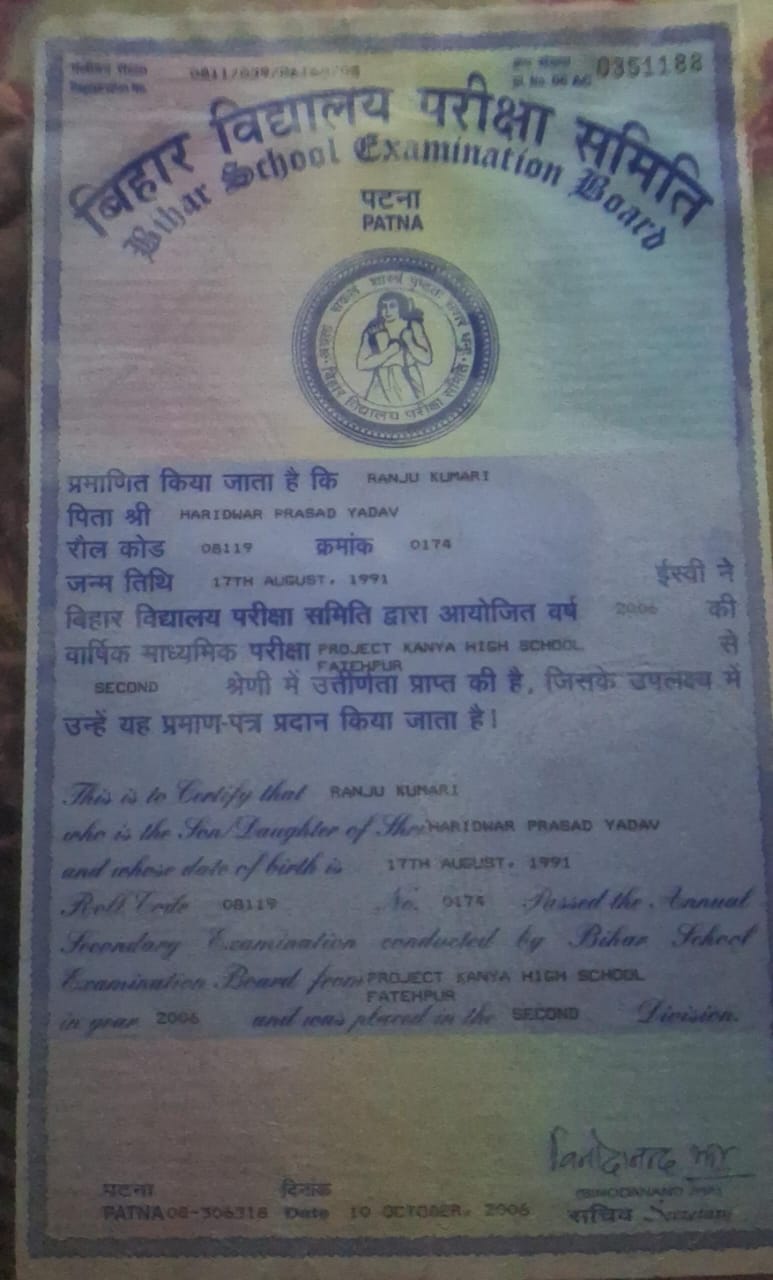 पंजीयन संख्या
Registration No.
क्रम संख्या
Sl. No. 06 AC 0351188
बिहार विद्यालय परीक्षा समिति
Bihar School Examination Board
पटना
PATNA
बिहार विद्यालय परीक्षा समिति
प्रमाणित किया जाता है कि RANJU KUMARI
पिता श्री HARIDWAR PRASAD YADAV
रौल कोड 08119 क्रमांक 0174
जन्म तिथि 17TH AUGUST, 1991 ईस्वी ने
बिहार विद्यालय परीक्षा समिति द्वारा आयोजित वर्ष 2006 की
वार्षिक माध्यमिक परीक्षा PROJECT KANYA HIGH SCHOOL से
FATEHPUR
SECOND श्रेणी में उत्तीर्णता प्राप्त की है, जिसके उपलक्ष्य में
उन्हें यह प्रमाण-पत्र प्रदान किया जाता है।
This is to Certify that RANJU KUMARI
who is the Son/Daughter of Shri HARIDWAR PRASAD YADAV
and whose date of birth is 17TH AUGUST, 1991
Roll Code 08119 No. 0174 Passed the Annual
Secondary Examination conducted by Bihar School
Examination Board from PROJECT KANYA HIGH SCHOOL
FATEHPUR
in year 2006 and was placed in the SECOND Division.
विनोदानन्द झा
(BINODANAND JHA)
पटना दिनांक
PATNA 06-306318 Date 10 OCTOBER, 2006 सचिव Secretary